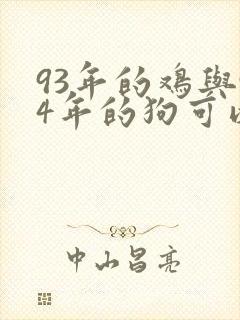 93年的鸡與
4年的狗可
中山昌亮